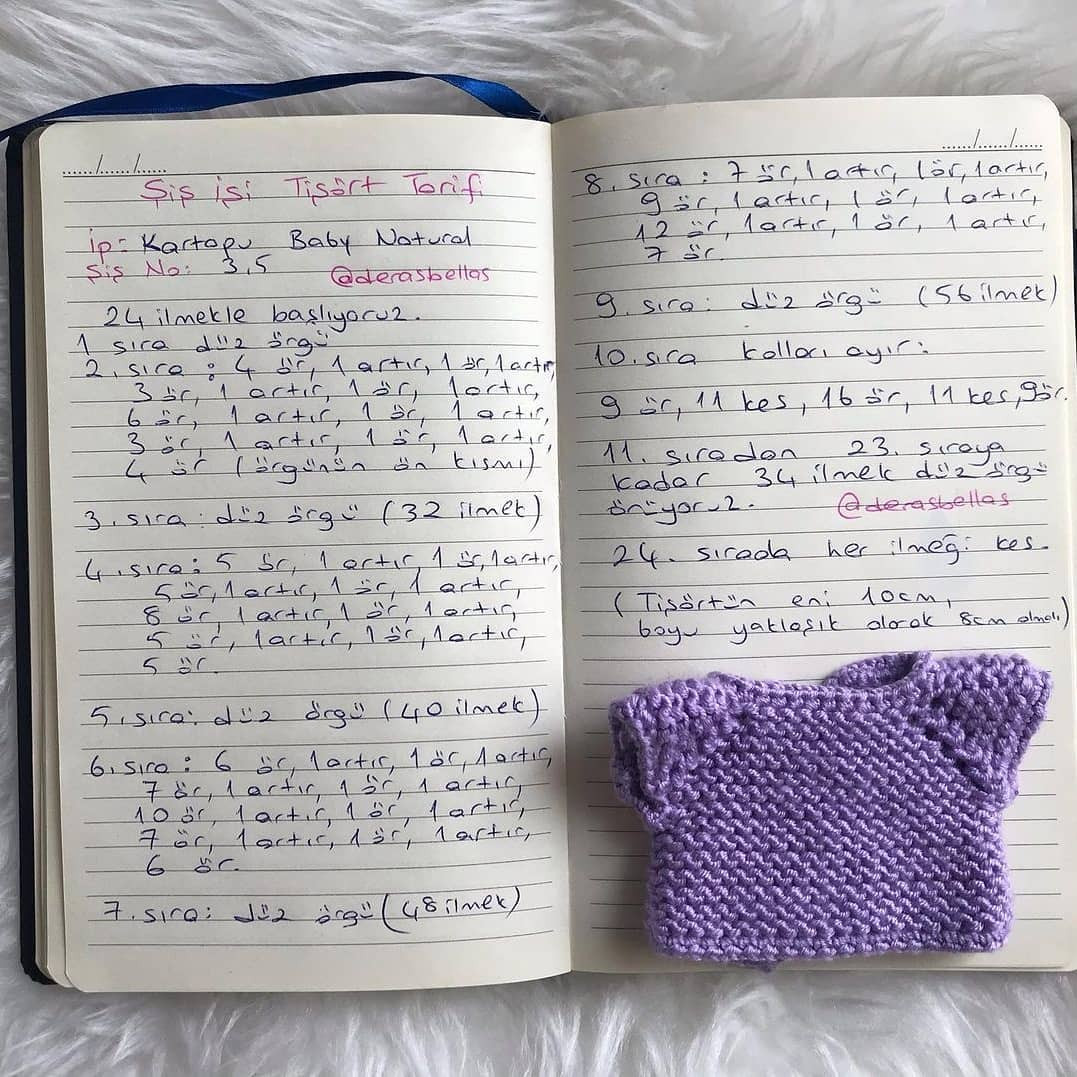 ....../....../......
Şiş işi Tişört Tarifi
İp: Kartopu Baby Natural
Şiş No: 3,5 @derasbellas
24 ilmekle başlıyoruz.
1 sıra düz örgü
2. sıra : 4 ör, 1 artır, 1 ör, 1 artır,
3 ör, 1 artır, 1 ör, 1 artır,
6 ör, 1 artır, 1 ör, 1 artır,
3 ör, 1 artır, 1 ör, 1 artır,
4 ör (örgünün ön kısmı)
3. sıra : düz örgü (32 ilmek)
4. sıra : 5 ör, 1 artır, 1 ör, 1 artır,
5 ör, 1 artır, 1 ör, 1 artır,
8 ör, 1 artır, 1 ör, 1 artır,
5 ör, 1 artır, 1 ör, 1 artır,
5 ör.
5. sıra: düz örgü (40 ilmek)
6. sıra : 6 ör, 1 artır, 1 ör, 1 artır,
7 ör, 1 artır, 1 ör, 1 artır,
10 ör, 1 artır, 1 ör, 1 artır,
7 ör, 1 artır, 1 ör, 1 artır,
6 ör.
7. sıra: düz örgü (48 ilmek)
....../....../......
8. sıra : 7 ör, 1 artır, 1 ör, 1 artır,
9 ör, 1 artır, 1 ör, 1 artır,
12 ör, 1 artır, 1 ör, 1 artır,
7 ör.
9. sıra: düz örgü (56 ilmek)
10. sıra kolları ayır:
9 ör, 11 kes, 16 ör, 11 kes, 9 ör.
11. sıradan 23. sıraya
kadar 34 ilmek düz örgü
örüyoruz. @derasbellas
24. sırada her ilmeği kes.
(Tişörtün eni 10cm,
boyu yaklaşık olarak 8cm olmalı)